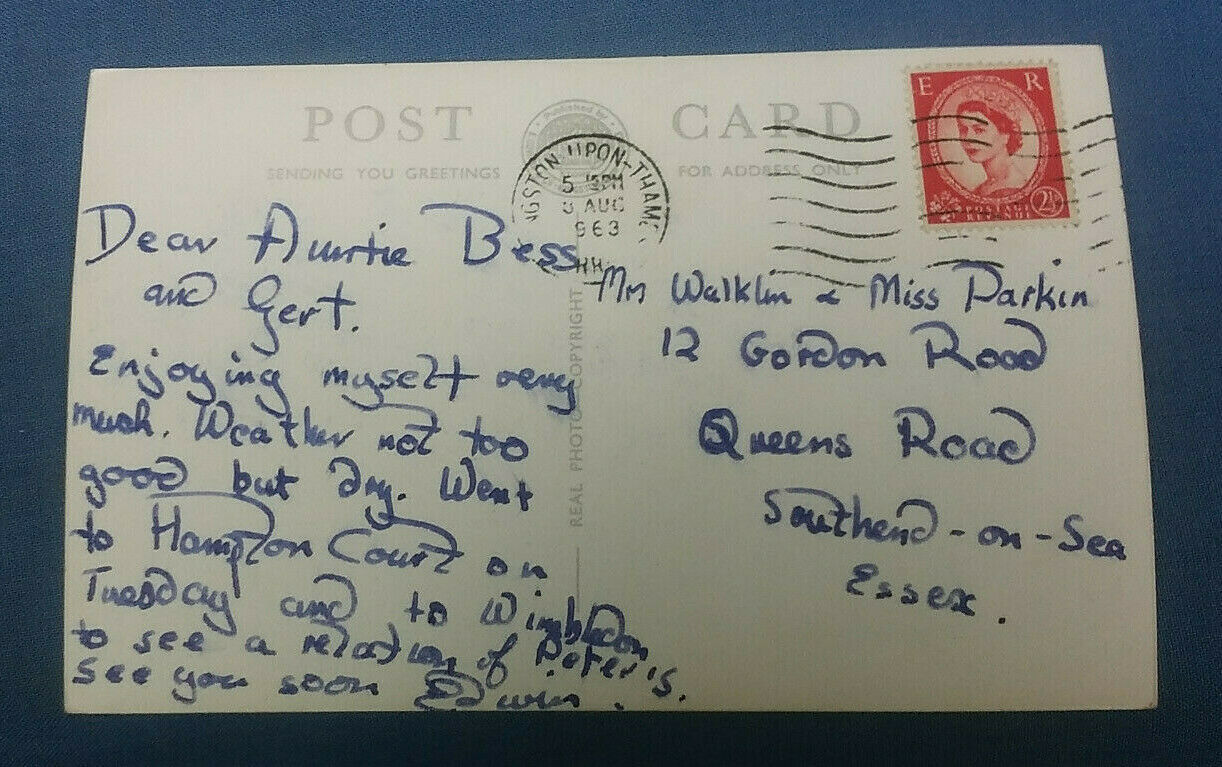 POST CARD
SENDING YOU GREETINGS
FOR ADDRESS ONLY
Published by
NGSTON UPON-THAM
5 15PM
AUG
963
E R
POSTAGE
REVENUE
2½
Dear Auntie Bess
and Gert.
Enjoying myself very
much. Weather not too
good but dry. Went
to Hampton Court on
Tuesday and to Wimbledon
to see a relation of Peter's.
See you soon Edwin.
REAL PHOTO COPYRIGHT
Walklin & Miss Parkin
12 Gordon Road
Queens Road
Southend-on-Sea
Essex.